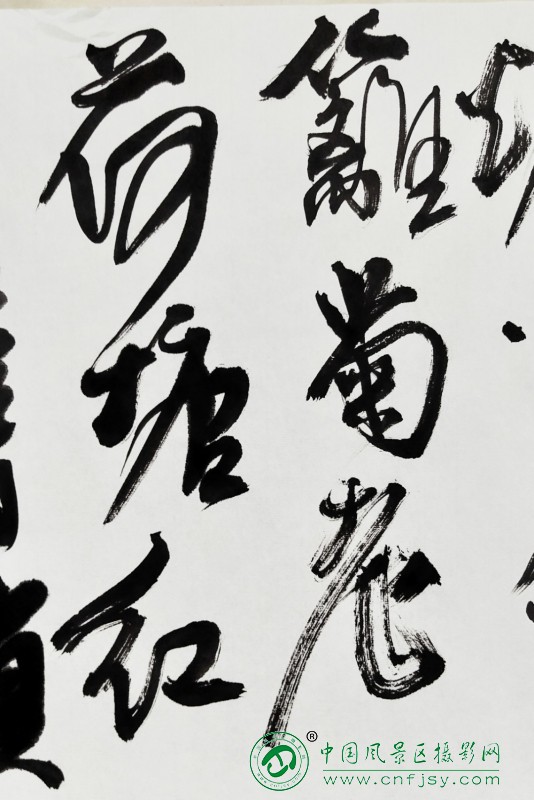 籬菊老
荷塘红
®
中国风景区摄影网
www.cnfjsy.com